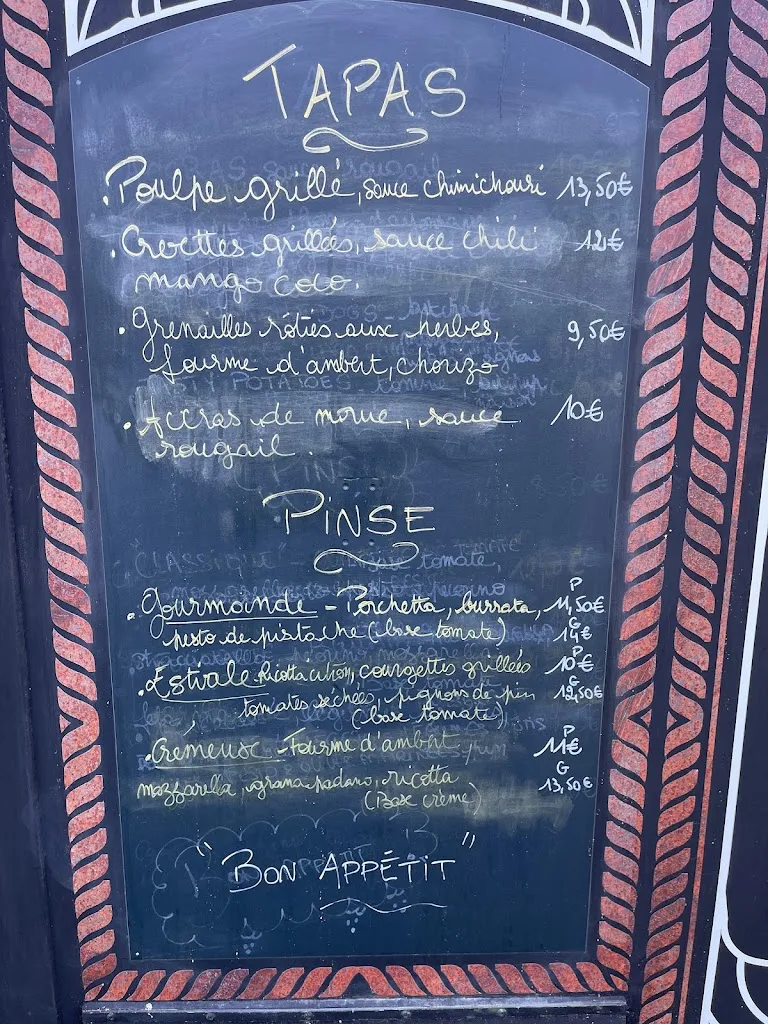 TAPAS
. Poulpe grillé, sauce chimichouri 13,50€
. Crevettes grillées, sauce chili 12€
mango coco.
. Grenailles rôties aux herbes, 9,50€
fourme d'ambert, chorizo
. Accras de morue, sauce 10€
rougail.
PINSE
. Gourmande - Porchetta, burrata, P 11,50€
pesto de pistache (base tomate) G 14€
. Estivale - Ricotta citron, courgettes grillées P 10€
tomates séchées, pignons de pin G 12,50€
(base tomate)
. Crémeuse - Fourme d'ambert P 11€
mozzarella, grana padano, ricotta G 13,50€
(Base crème)
"BON APPÉTIT"